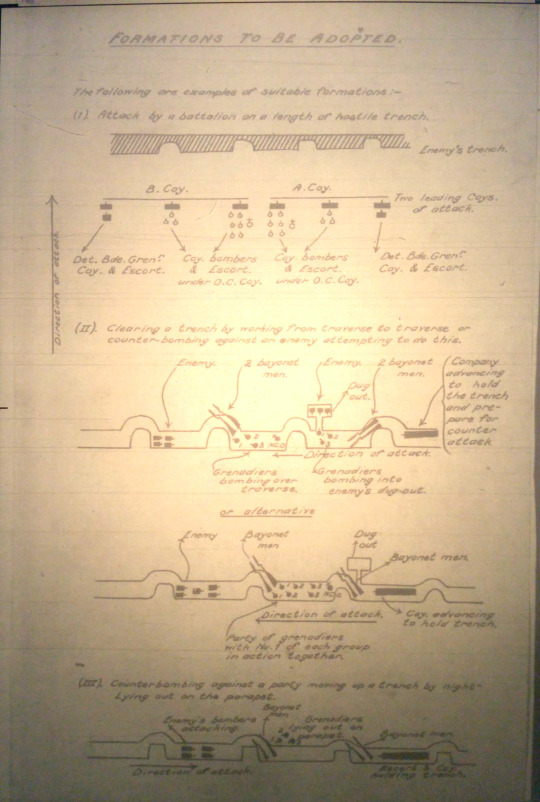 FORMATIONS TO BE ADOPTED.
The following are examples of suitable formations:-
(I). Attack by a battalion on a length of hostile trench.
Enemy's trench.
B. Coy.
A. Coy.
Two leading Coys.
of attack.
Direction of attack
Det. Bde. Gren.rs
Coy. & Escort.
Coy. bombers
& Escort
under O.C. Coy.
Coy. bombers
& Escort
under O.C. Coy.
Det. Bde. Gren.rs
Coy. & Escort.
(II). Clearing a trench by working from traverse to traverse or
counter-bombing against an enemy attempting to do this.
Enemy.
2 bayonet
men.
Enemy.
Dug
out.
2 bayonet
men.
Company
advancing
to hold
the trench
and pre-
pare for
counter
attack
NCO
Direction of attack.
Grenadiers
bombing over
traverse.
Grenadiers
bombing into
enemy's dug-out.
or alternative
Enemy
Bayonet
men
Dug
out
Bayonet men.
NCO
Direction of attack.
Coy. advancing
to hold trench.
Party of grenadiers
with No. 1 of each group
in action together.
(III). Counterbombing against a party moving up a trench by night-
Lying out on the parapet.
Enemy's bombers
attacking.
Bayonet
men.
Grenadiers
lying out on
parapet.
Bayonet men.
Direction of attack.
Escort & Coy.
holding trench.